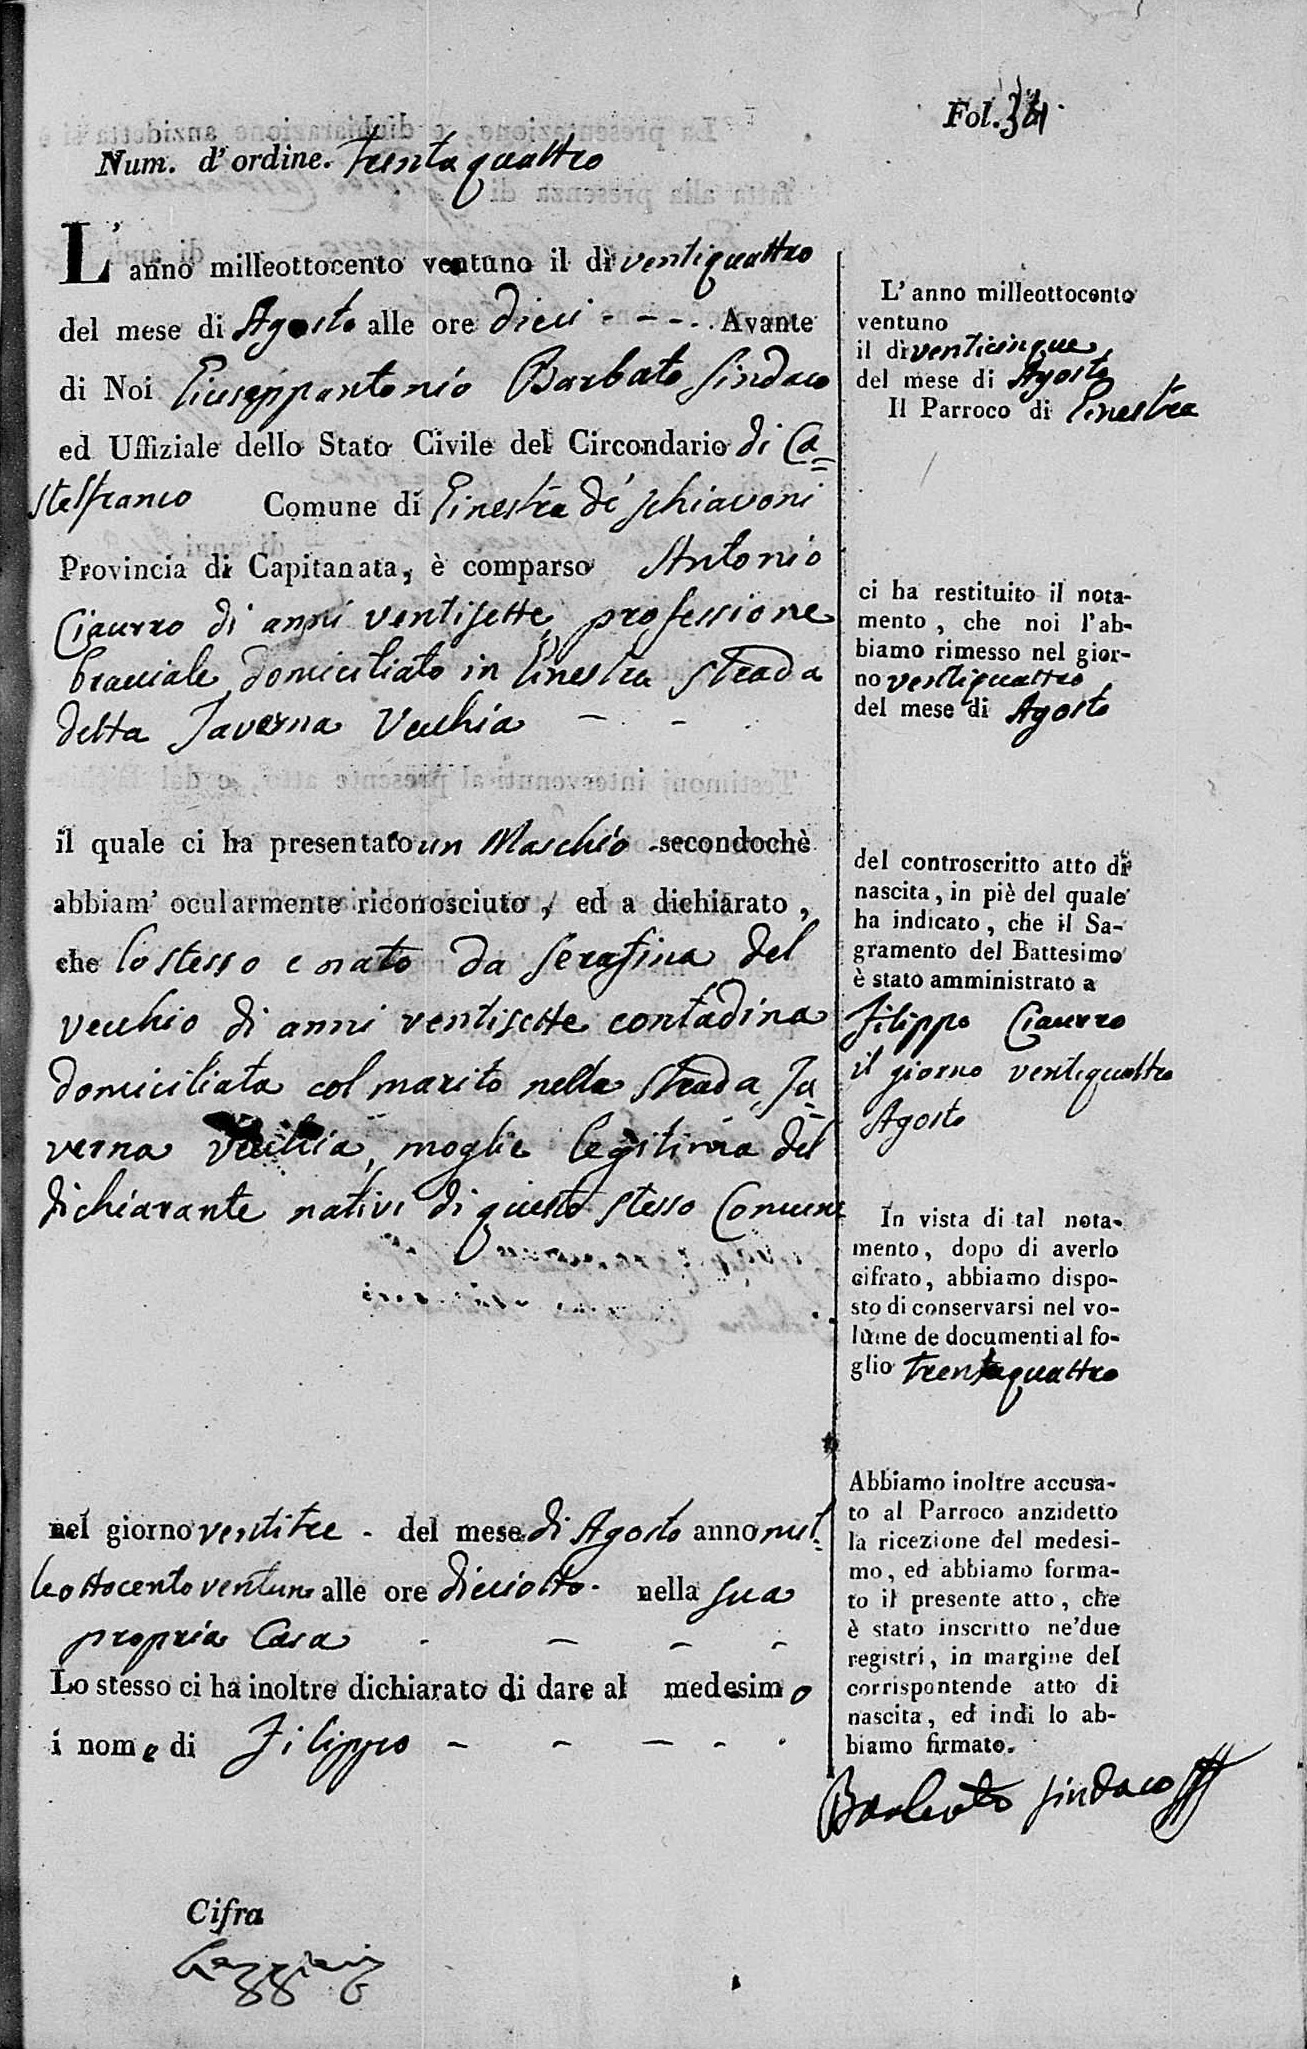 Fol. 34.
Num. d'ordine. trentaquattro
L'anno milleottocento ventuno il dì ventiquattro
del mese di Agosto alle ore dieci - - - . Avante
di Noi Giuseppantonio Barbato Sindaco
ed Uffiziale dello Stato Civile del Circondario di Ca=
stelfranco Comune di Ginestra de' Schiavoni
Provincia di Capitanata, è comparso Antonio
Ciaurro di anni ventisette professione
bracciale domiciliato in Ginestra strada
detta Taverna Vecchia - -
il quale ci ha presentato un Maschio secondochè
abbiam' ocularmente riconosciuto, ed a dichiarato,
che lo stesso e nato da Serafina del
vecchio di anni ventisette contadina
domiciliata col marito nella strada Ta=
verna Vecchia, moglie legitima del
dichiarante nativi di questo stesso Comune
nel giorno ventitre - del mese di Agosto anno mil=
leottocento ventuno alle ore dieciotto - nella sua
propria Casa - - - -
Lo stesso ci ha inoltre dichiarato di dare al medesimo
i nome di Filippo - - - - .
Cifra
L'anno milleottocento
ventuno
il dì venticinque
del mese di Agosto
Il Parroco di Ginestra
ci ha restituito il nota-
mento, che noi l'ab-
biamo rimesso nel gior-
no ventiquattro
del mese di Agosto
del controscritto atto di
nascita, in piè del quale
ha indicato, che il Sa-
gramento del Battesimo
è stato amministrato a
Filippo Ciaurro
il giorno ventiquattro
Agosto
In vista di tal nota-
mento, dopo di averlo
cifrato, abbiamo dispo-
sto di conservarsi nel vo-
lume de documenti al fo-
glio trentaquattro
Abbiamo inoltre accusa-
to al Parroco anzidetto
la ricezione del medesi-
mo, ed abbiamo forma-
to il presente atto, che
è stato inscritto ne'due
registri, in margine del
corrispontende atto di
nascita, ed indi lo ab-
biamo firmato.
Barbato Sindaco